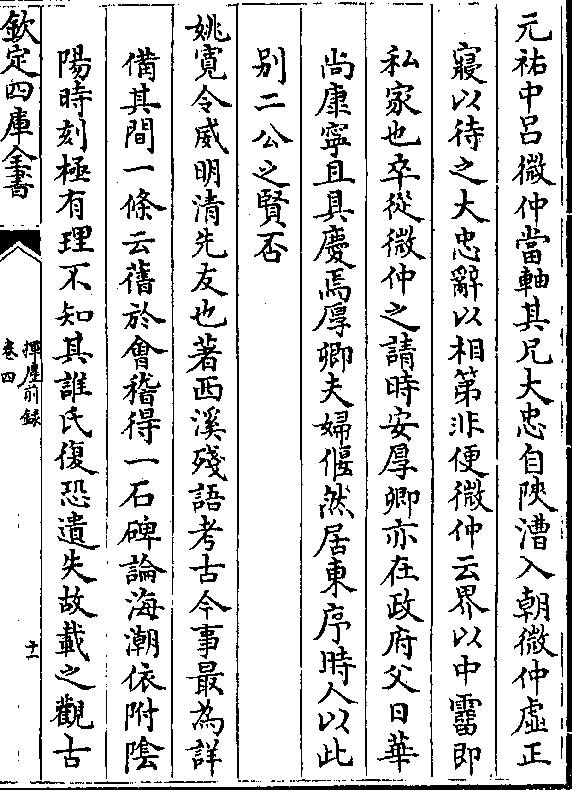 元祐中吕微仲當軸其兄大忠自陜漕入朝微仲虛正
寢以待之大忠辭以相第非便微仲云界以中霤即
私家也卒從微仲之請時安厚卿亦在政府父日華
尚康寧且具慶焉厚卿夫婦偃然居東序時人以此
别二公之賢否
姚寬令威明清先友也著西溪殘語考古今事最為詳
備其間一條云舊於會稽得一石碑論海潮依附陰
陽時刻極有理不知其誰氏復恐遺失故載之觀古
欽定四庫全書
揮麈前録
卷四
十一